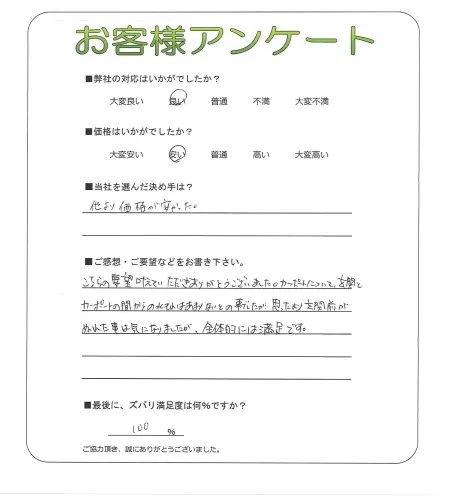 お客様アンケート
■弊社の対応はいかがでしたか?
大変良い 良い 普通 不満 大変不満
■価格はいかがでしたか?
大変安い 安い 普通 高い 大変高い
■当社を選んだ決め手は?
他より価格が安かった。
■ご感想・ご要望などをお書き下さい。
こちらの要望叶えていただきありがとうございました。カーポートについて、玄関と
カーポートの間からの水もれはあまりないとの事でしたが、思ったより玄関前が
ぬれた事は気になりましたが、全体的には満足です。
■最後に、ズバリ満足度は何%ですか?
100 %
ご協力頂き、誠にありがとうございました。